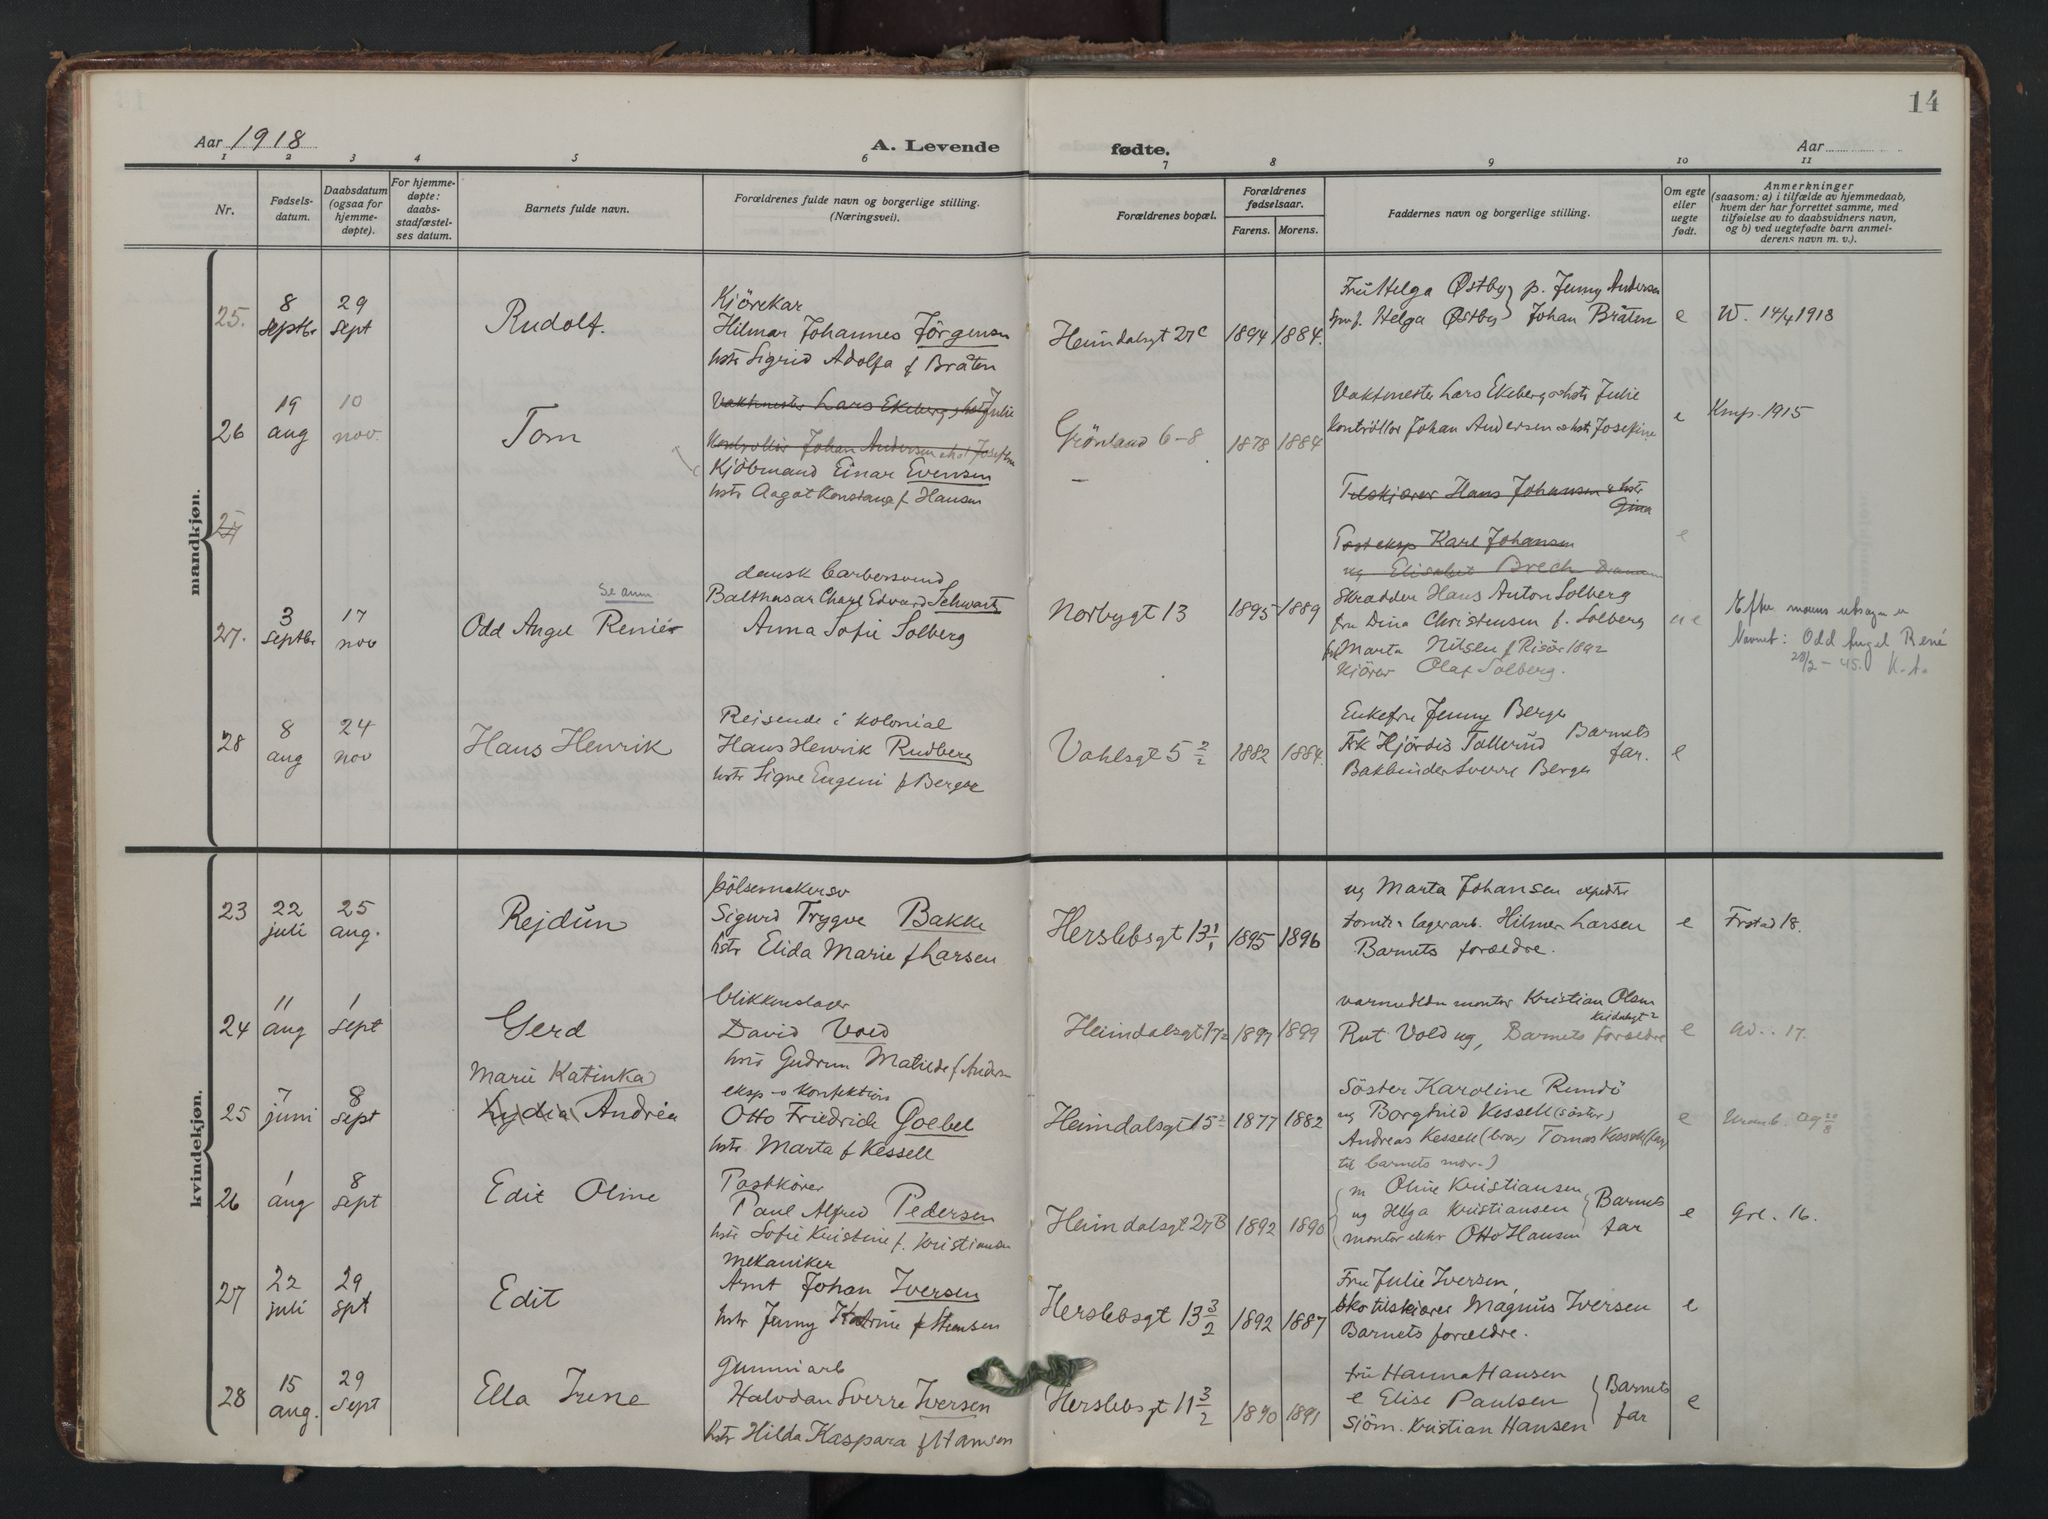 14
Aar 1918
A. Levende fødte.
Aar
1 2 3 4 5 6 7 8 9 10 11
Nr.
Fødsels-
datum.
Daabsdatum
(ogsaa for
hjemme-
døpte).
For hjemme-
døpte:
daabs-
stadfæstel-
ses datum.
Barnets fulde navn.
Forældrenes fulde navn og borgerlige stilling.
(Næringsvei).
Forældrenes bopæl.
Forældrenes
fødselsaar.
Farens. Morens.
Faddernes navn og borgerlige stilling.
Om egte
eller
uegte
født.
Anmerkninger
(saasom: a) i tilfælde av hjemmedaab,
hvem der har forrettet samme, med
tilføielse av to daabsvidners navn,
og b) ved uegtefødte barn anmel-
derens navn m. v.).
mandkjøn.
25. 8 septbr 29 sept Rudolf.
Kjörekar
Hilmar Johannes Jörgensen
hstr Sigrid Adolfa f Bråten
Heimdalsgt 27c 1894 1884.
Fru Helga Östby p. Jenny Andersen
Helga Östby Johan Bråten
e
W. 14/4 1918
26 19 aug 10 nov. Tom
Vaktmester Lars Ekeberg hstr Julie
Kontrollör Johan Andersen hst Josefine
Kjöbmand Einar Evensen
hstr Aagot Konstanse f Hansen
Grönland 6-8 1878 1884
Vaktmester Lars Ekeberg hstr Julie
Kontrollör Johan Andersen hstr Josefine
e
Kmp. 1915
Tilskjærer Hans Johansen hstr
Gina
Posteksp Karl Johansen
ug Elisabet Brech Drammen
e
27. 3 septbr 17 nov
Se anm.
Odd Angel Renier
dansk barbersvend
Balthasar Charl Edvard Schwartz
Anna Sofie Solberg
Norbygt 13 1895 1889
Skrædder Hans Anton Solberg
fru Dina Christensen f. Solberg
Marta Nilsen f Risör 1892
Kjörer Olaf Solberg.
u e
Efter morens utsagn er
Navnet: Odd Angel René
28/2 - 45. K. A.
28 8 aug 24 nov Hans Henrik
Reisende i kolonial
Hans Henrik Rudberg
hstr Signe Eugeni f Berge
Vahlsgt 5 2/2 1882 1884.
Enkefru Jenny Berge
Frk Hjördis Tollerud
Bokbinder Sverre Berge
Barnets
far.
e
kvindekjøn.
23 22 juli 25 aug. Rejdun
pölsemakersv
Sigurd Trygve Bakke
hstr Elida Marie f Larsen
Herslebsgt 13 1/1 1895 1896
ug Marta Johansen expedtr
tomte- lagerarb. Hilmer Larsen
Barnets forældre.
e
Frstad 18.
24 11 aug 1 sept Gerd
blikkenslager
David Vold
Gudrun Matilde f Anders
Heimdalsgt 17 1897 1899
montör Kristian Olsen
Rut Vold ug, Barnets forældre
e
17.
25 7 juni 8 sept
Marie Katinka
Lydia Andréa
eksp konfektion
Otto Friedrich Goebel
hstr Marta f Kessell
Heimdalsgt 15 1877 1882
Söster Karoline Rundö
ug Borghild Kessell (söster)
Andreas Kessell (bror) Tomas Kessell (far)
til barnets mor.)
e
26 1 aug 8 sept Edit Oline
Postkörer
Paul Alfred Pedersen
hstr Sofie Kristine f. Kristiansen
Heimdalsgt 27B 1892 1890
m Oline Kristiansen
ug Helga Kristiansen
montör elektr Otto Hansen
Barnets
far
e
Grl. 16.
27 22 juli 29 spt Edit
mekaniker
Arnt Johan Iversen
hstr Jenny Katrine f Steensen
Herslebsgt 13 3/2 1892 1887
Fru Julie Iversen
Skotilskjærer Magnus Iversen
Barnets forældre.
e
28 15 aug. 29 sept Ella Irene
Gummiarb
Halvdan Sverre Iversen
hstr Hilda Kaspara f Hansen
Herslebsgt 11 3/2 1890 1891
fru Hanna Hansen
e Elise Paulsen
Sjöm. Kristian Hansen
Barnets
far
e